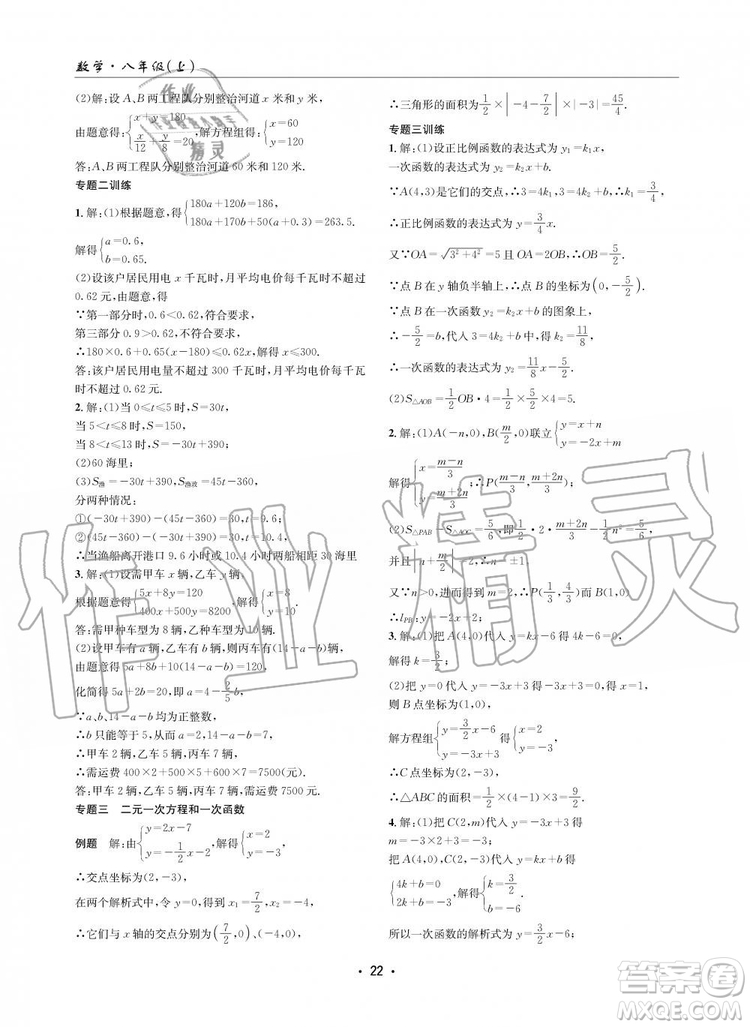 数学·八年级(上)
(2)解:设 A、B 两工程队分别整治河道 x 米和 y 米,
由题意得:{x+y=180 x/12+y/8=20,解方程组得:{x=60 y=120
答:A、B 两工程队分别整治河道 60 米和 120 米.
专题二训练
1.解:(1)根据题意,得{180a+120b=186, 180a+170b+50(a+0.3)=263.5.
解得{a=0.6, b=0.65.
(2)设该户居民用电 x 千瓦时,月平均电价每千瓦时不超过
0.62 元,由题意,得
∵第一部分时,0.6<0.62,不符合要求,
第三部分时 0.9>0.62,不符合要求,
∴180×0.6+0.65(x-180)≤0.62x,解得:x≤300
答:该户居民用电量不超过 300 千瓦时,其月平均电价每千
瓦时不超过 0.62 元.
2.解:(1)当 0≤t≤5 时,S=30t,
当 5<t≤8 时,S=150,
当 8<t≤13 时,S=-30t+390,
(2)60 海里;
(3)S渔=-30t+390,S渔政=45t-360,
分两种情况:
①(-30t+390)-(45t-360)=30,t=9.6;
②(45t-360)-(-30t+390)=30,t=10.4,
∴当渔船离开港口 9.6 小时或 10.4 小时两船相距 30 海里
3.解:(1)设需甲车 x 辆,乙车 y 辆,
根据题意得{5x+8y=120 400x+500y=8200,解得:{x=8 y=10
答:需甲种车型为 8 辆,乙种车型为 10 辆.
(2)设甲车有 a 辆,乙车有 b 辆,则丙车有(14-a-b)辆,
由题意得 5a+8b+10(14-a-b)=120,
化简得 5a+2b=20,即 a=4-2/5b,
∵a、b、14-a-b 均为正整数,
∴b 只能等于 5,从而 a=2,14-a-b=7,
∴甲车 2 辆,乙车 5 辆,丙车 7 辆,
∴需运费 400×2+500×5+600×7=7500(元),
答:甲车 2 辆,乙车 5 辆,丙车 7 辆,需运费 7500 元.
专题三 二元一次方程和一次函数
例题 解:由{y=2x-7 y=-1/2x-2,解得:{x=2 y=-3
∴交点坐标为(2,-3),
在两个解析式中,令 y=0,分别得到 x₁=7/2,x₂=-4,
∴它们与 x 轴的交点分别为(7/2,0),(-4,0),
∴三角形的面积为1/2×|-4-7/2|×|-3|=45/4.
专题三训练
1.解:(1)设正比例函数的表达式为 y₁=k₁x,
一次函数的表达式为 y₂=k₂x+b,
∵A(4,3)是它们的交点,∴代入得 3=4k₁,∴k₁=3/4,
∴正比例函数的表达式为 y=3/4x.
又∵OA=√(3²+4²)=5,且 OA=2OB,∴OB=5/2.
∵点 B 在 y 轴负半轴上,∴点 B 的坐标为(0,-5/2).
又∵点 B 在一次函数 y₂=k₂x+b 的图象上,
∴-5/2=b,代入 3=4k₂+b 得 k₂=11/8.
∴一次函数的表达式为 y₂=11/8x-5/2.
(2)S△AOB=1/2OB·4=1/2×5/2×4=5.
2.解:(1)A(-n,0),B(m/2,0)联立{y=x+n y=-2x+m
解得{x=(m-n)/3 y=(m+2n)/3,∴P((m-n)/3,(m+2n)/3).
(2)S△PAB-S△AOC=5/6,即1/2·2·(m+2n)/3-1/2n²=5/6,
又∵n>0,进而得 m=2,∴P(1/3,4/3),B(1,0),
3.解:(1)把 A(4,0)代入 y=kx-6 得 4k-6=0,
解得 k=3/2
(2)把 y=0 代入 y=-3x+3 得-3x+3=0,解得 x=1,
则 B 点坐标为(1,0),
解方程组{y=3/2x-6 y=-3x+3得{x=2 y=-3,
∴C 点坐标为(2,-3),
∴△ABC 的面积=1/2×(4-1)×3=9/2.
4.解:(1)把 C(2,m)代入 y=-3x+3 得
m=-3×2+3=-3
把 A(4,0)、C(2,-3)代入 y=kx+b 得
{4k+b=0 2k+b=-3,解得{k=3/2 b=-6
所以一次函数的解析式为 y=3/2x-6;
·22·
作业
精灵
作业精灵
答案圈
MXQE.COM